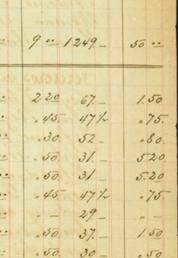 9 00 1249 – 50 00
2 20 67 – 1.50
.45 47½ .75
.30 52 – .80
.50 31 – 5.20
.50 31 – 5.20
.45 47½ .75
– 29 – –
.50 37 – 1.50
.50 30 – .50